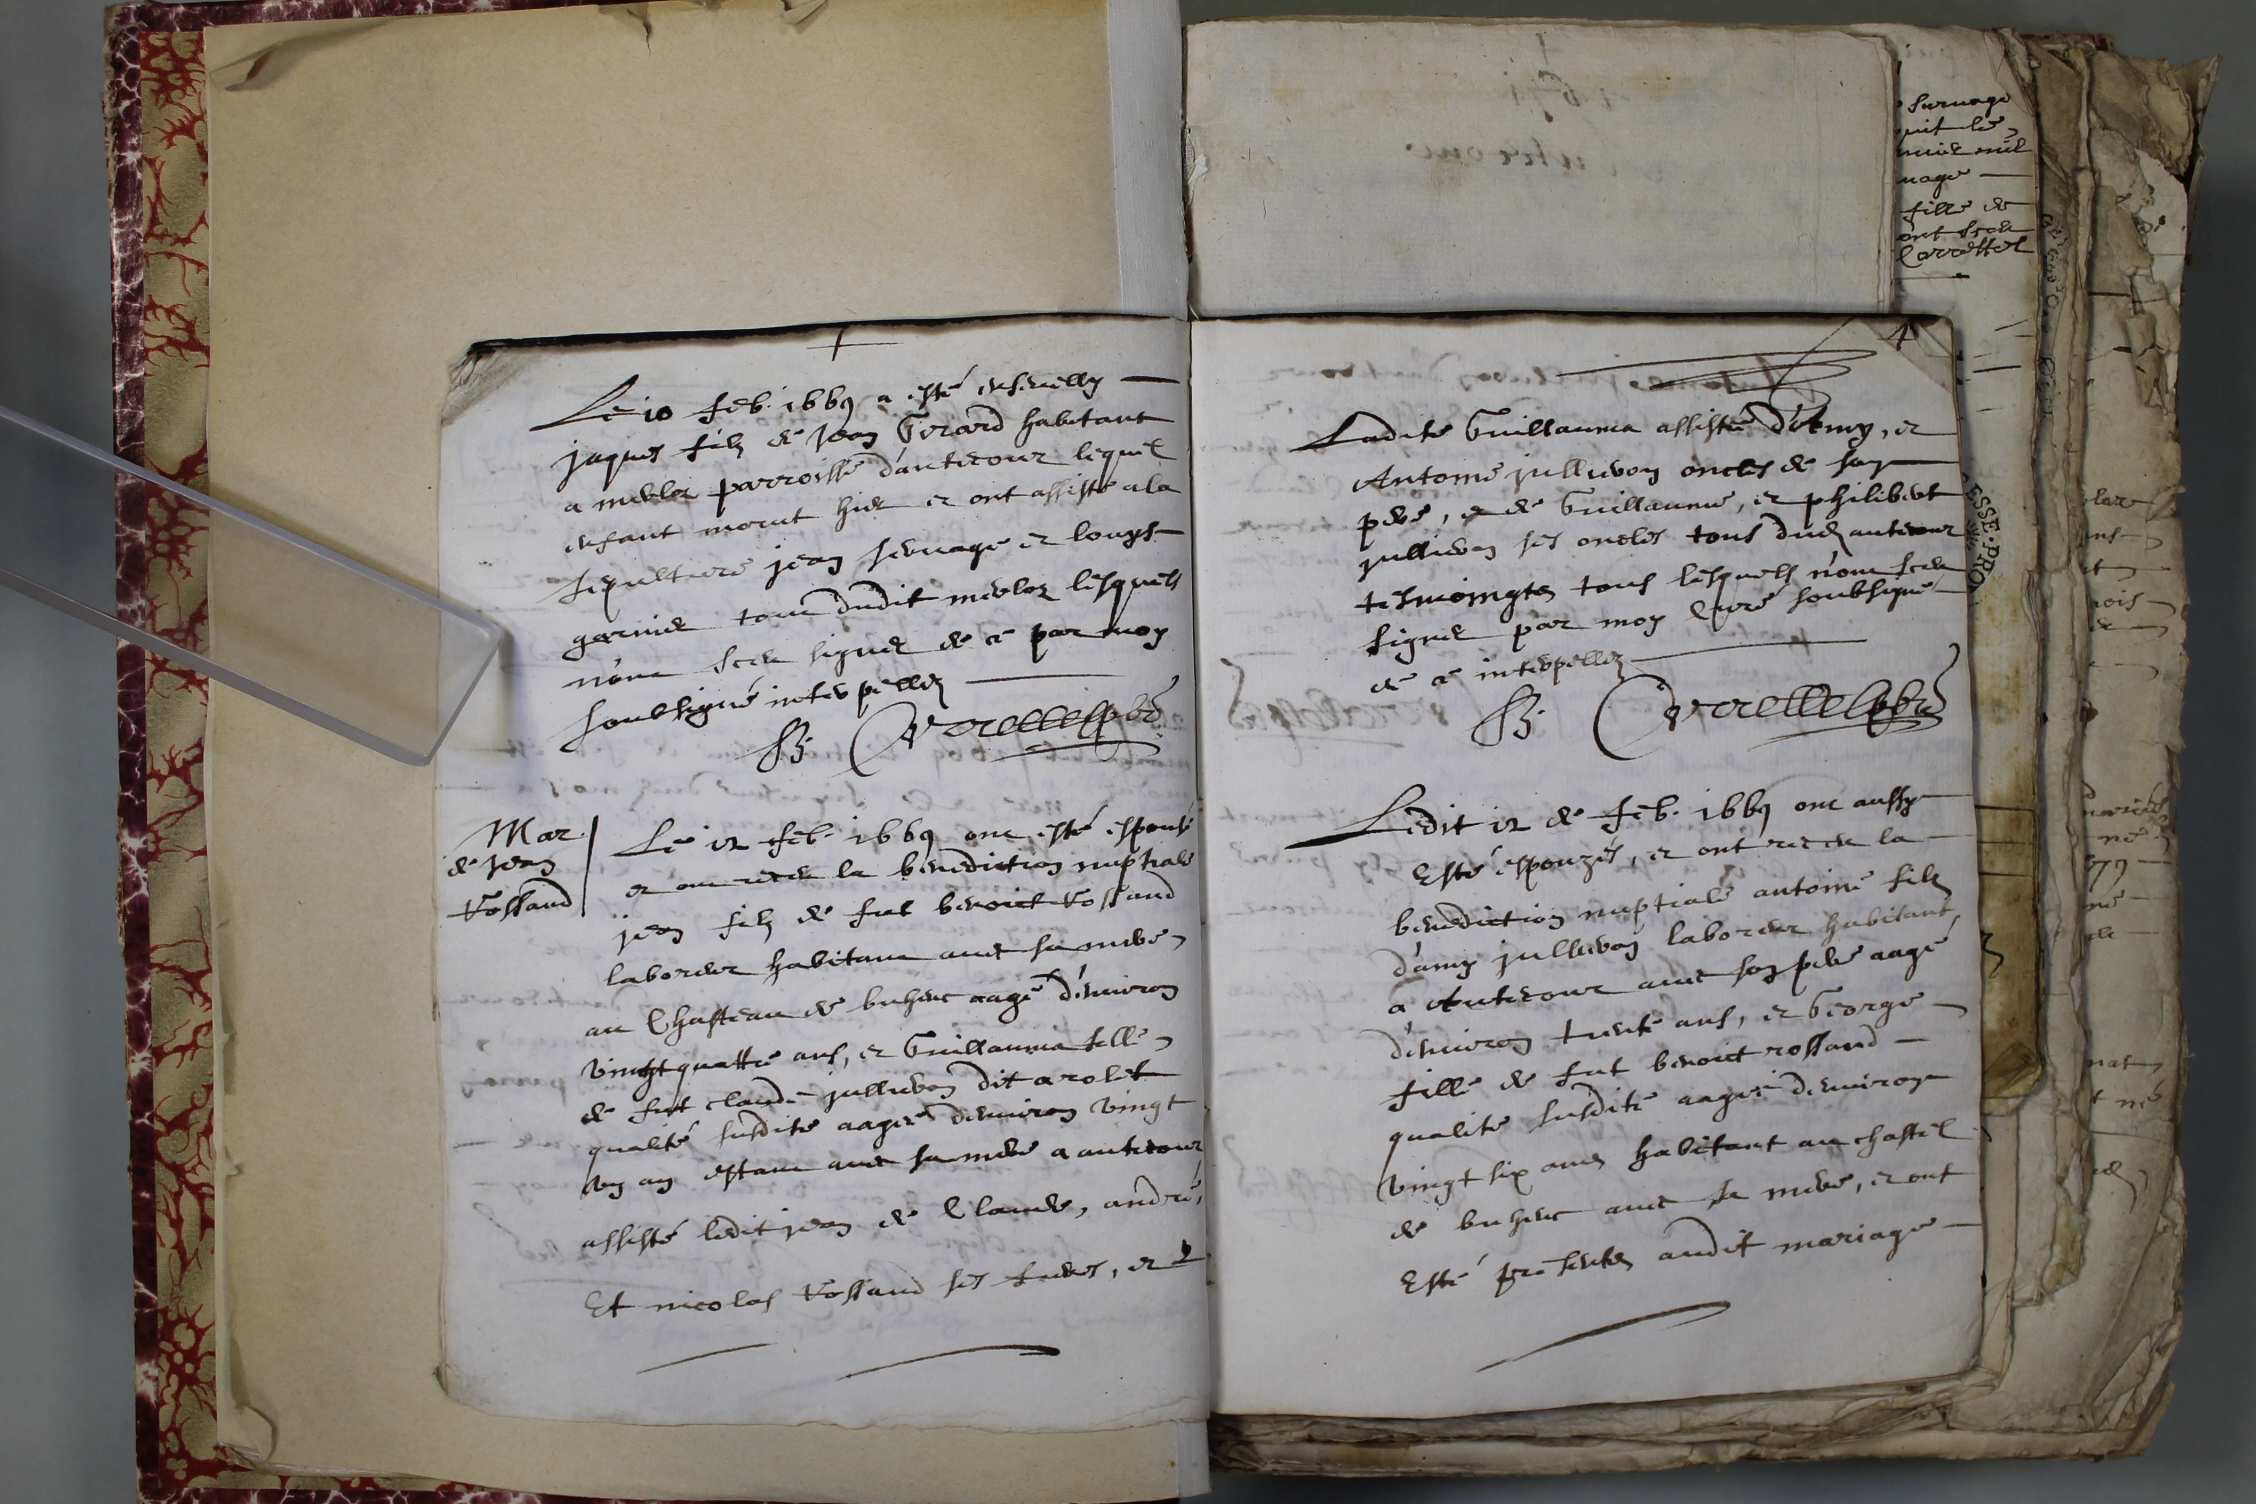 Le 10 feb. 1669 a esté ensevelly
jaques filz de Jean Gerard habitant
a meulor parroisse d'antecour lequel
enfant morut hier et ont assisté a la
sepulture jean servage et louys
garnier tous dudit meulor lesquels
n'ont sceu signer de ce par moy
soubsigné interpellez
Mar
de Jean
Rossand
Le 12 feb. 1669 ont esté espousé
et ont receu la benediction nuptiale
jean filz de fut benoict Rossand
laboreur habitant avec sa mere
au Chasteau de buhenc aagé d'environ
vingt quattre ans, et Guillauma fille
de fut claude jullievon dit arolet
qualité susdite aagée denviron vingt
un an estant avec sa mere a antecour
assisté ledit jean de Claude, andré,
Et nicolas Rossand ses freres, et
4
Ladite Guillauma assistée d'Esmy, et
Antoine jullievon oncles de son
pere, et de Guillaume, et philibert
jullievon ses oncles tous dud antecour
tesmoingts tous lesquels n'ont sceu
signer par moy Curé soubsigné
de ce interpellez
Ledit 12 de feb. 1669 ont aussy
Esté espouzés, et ont receu la
benediction nuptiale antoine filz
d'amy jullievon laboreur habitant
a Antecour avec son pere aagé
d'environ trente ans, et George
fille de fut benoict rossand
qualité susdite aagée denviron
vingt six ans habitant au chastel
de buhenc avec sa mere, et ont
Esté presents audit mariage